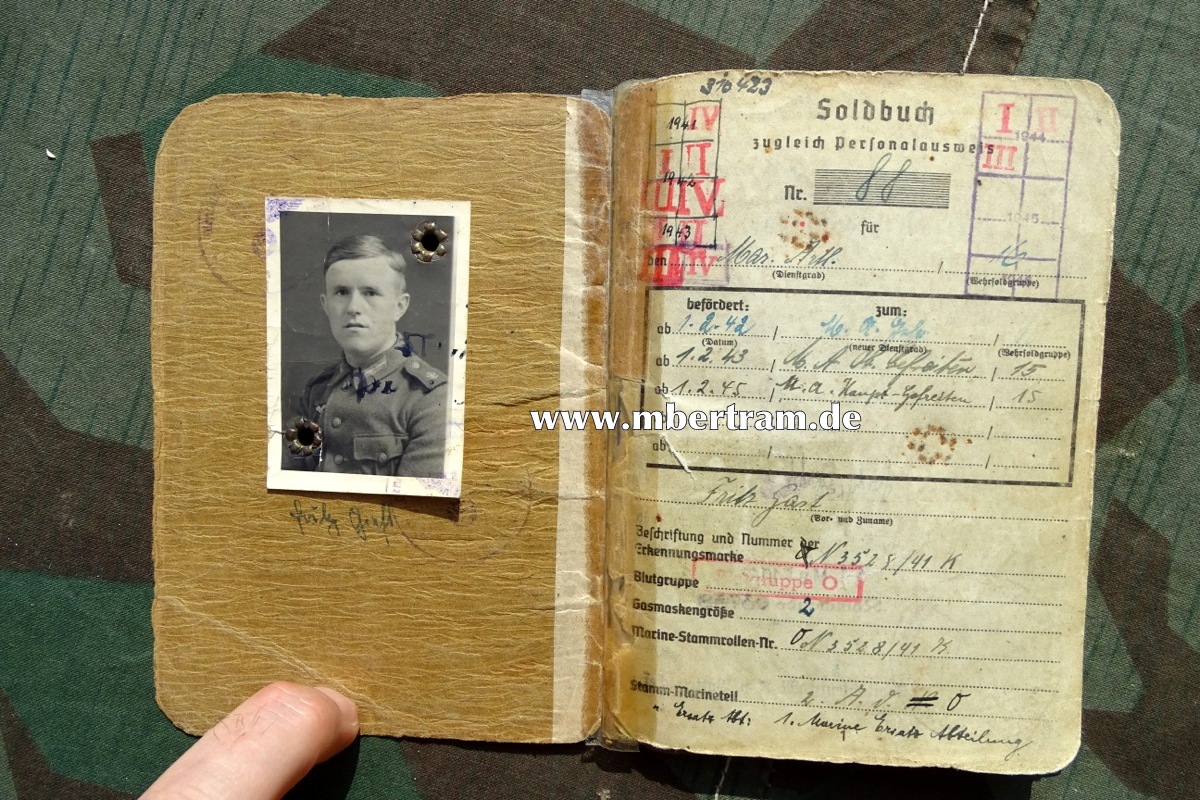 310423
Soldbuch
zugleich Personalausweis
Nr. 88
für
den Mar. Artl.
(Dienstgrad) (Wehrsoldgruppe)
1941 IV
I II
1942
III IV
1943 I
III IV
I II 1944
III
1945
befördert: zum:
ab 1.2.42
(Datum) (neuer Dienstgrad) (Wehrsoldgruppe)
ab 1.2.43 15
ab 1.2.45 M.A. Haupt-Gefreiten 15
ab
www.mbertram.de
Fritz Gast
(Vor- und Zuname)
Fritz Gast
Beschriftung und Nummer der
Erkennungsmarke O N 3528/41 K
Blutgruppe gruppe O
Gasmaskengröße 2
Marine-Stammrollen-Nr. O N 3528/41 K
Stamm-Marineteil 2. A. d. O
" Ersatz Abt: 1. Marine Ersatz Abteilung